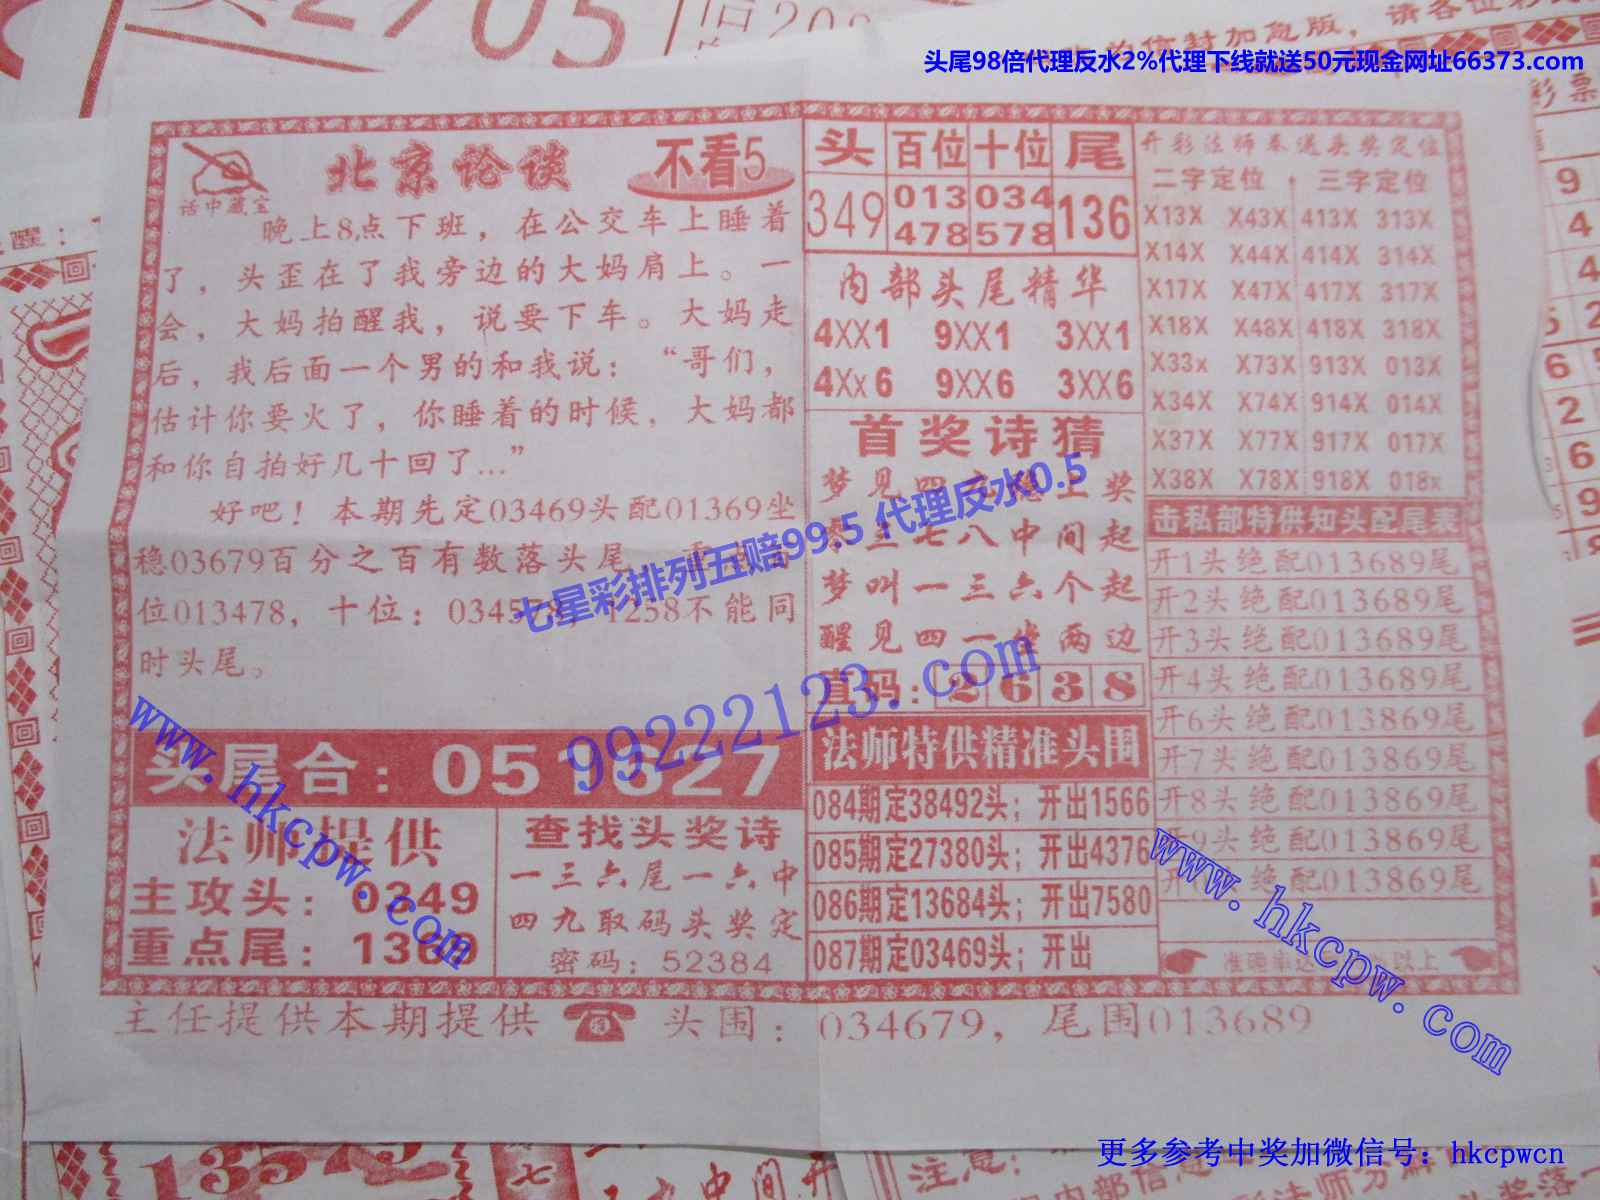 头尾98倍代理反水2%代理下线就送50元现金网址66373.com
北京论谈
不看5
话中藏宝
晚上8点下班，在公交车上睡着
了，头歪在了我旁边的大妈肩上。一
会，大妈拍醒我，说要下车。大妈走
后，我后面一个男的和我说：“哥们，
估计你要火了，你睡着的时候，大妈都
和你自拍好几十回了...”
好吧！本期先定03469头配01369坐
稳03679百分之百有数落头尾，
位013478，十位：034578，1258不能同
时头尾。
头尾合：051627
法师提供
主攻头：0349
重点尾：1369
查找头奖诗
一三六尾一六中
四九取码头奖定
密码：52384
头 百位 十位 尾
349 013 034 136
478 578
内部头尾精华
4XX1 9XX1 3XX1
4Xx6 9XX6 3XX6
首奖诗猜
梦见四 奖
三七八中间起
梦叫一三六个起
醒见四一坐两边
直码：2 6 3 8
法师特供精准头围
084期定38492头；开出1566
085期定27380头；开出4376
086期定13684头；开出7580
087期定03469头；开出
开彩法师奉送头奖定位
二字定位 三字定位
X13X X43X 413X 313X
X14X X44X 414X 314X
X17X X47X 417X 317X
X18X X48X 418X 318X
X33x X73X 913X 013X
X34X X74X 914X 014X
X37X X77X 917X 017X
X38X X78X 918X 018x
击私部特供知头配尾表
开1头绝配013689尾
开2头绝配013689尾
开3头绝配013689尾
开4头绝配013689尾
开6头绝配013869尾
开7头绝配013869尾
开8头绝配013869尾
开9头绝配013869尾
头绝配013869尾
准确率达 以上
主任提供本期提供 头围：034679，尾围013689
七星彩排列五赔99.5 代理反水0.5
99222123.com
www.hkcpw.com
www.hkcpw.com
更多参考中奖加微信号：hkcpwcn